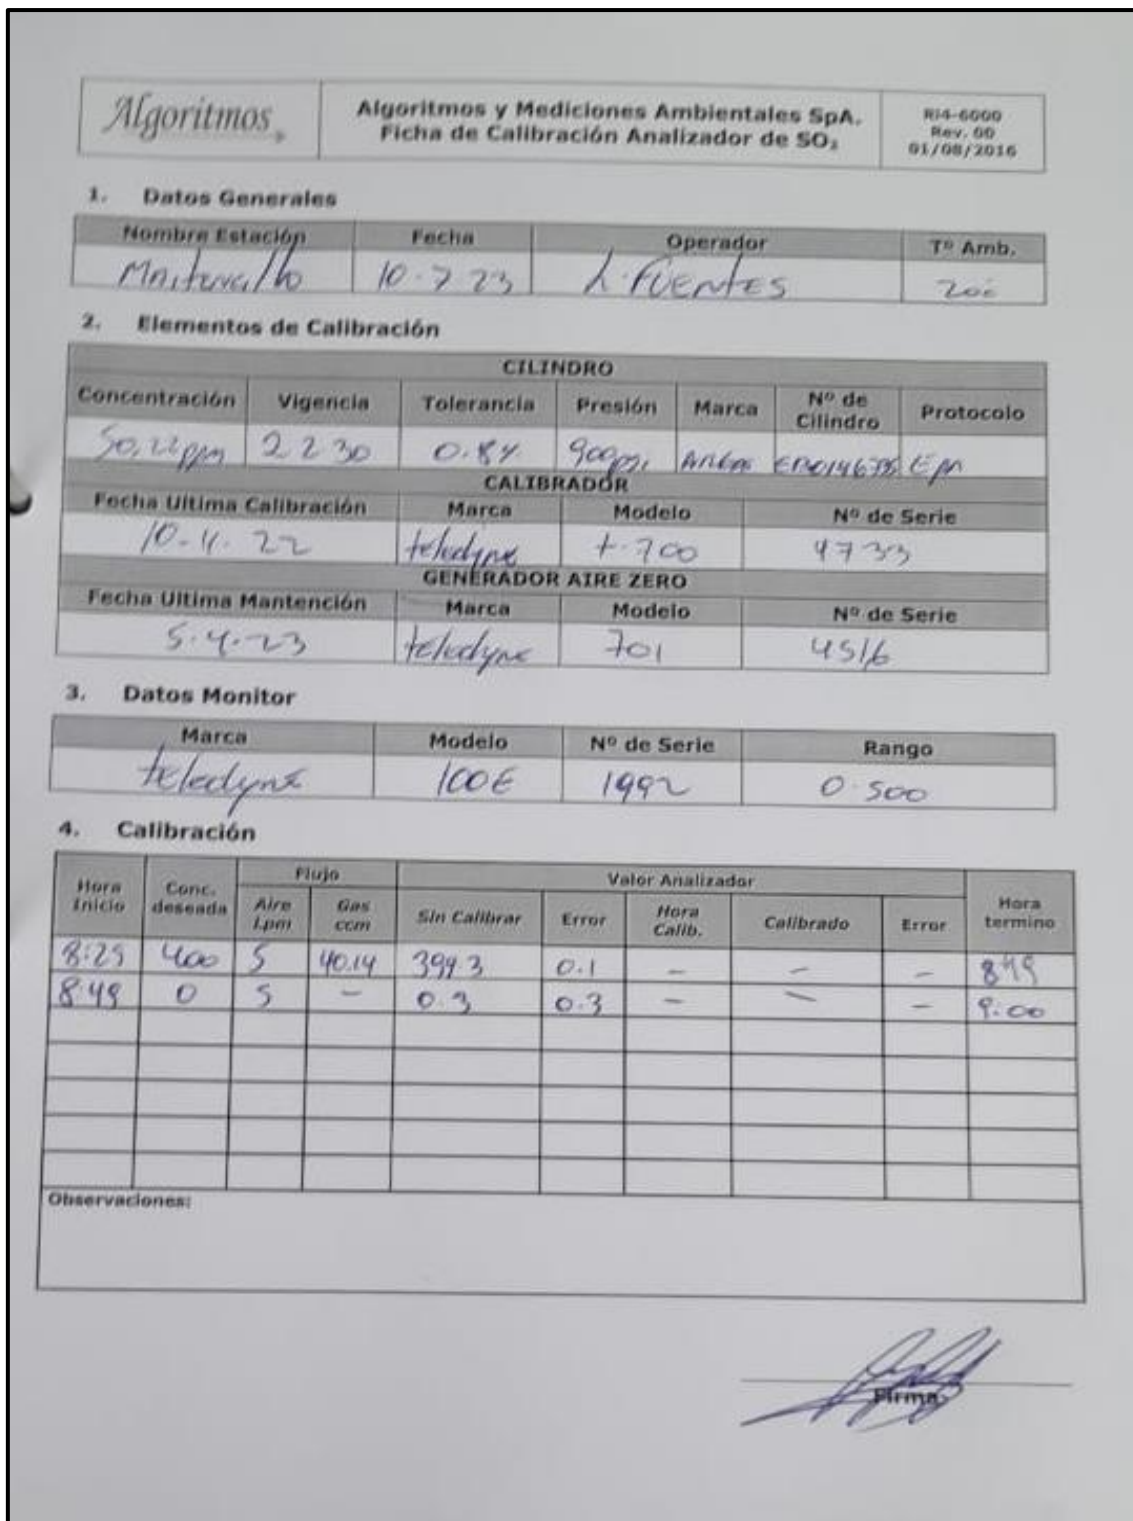 Algoritmos
Algoritmos y Mediciones Ambientales SpA.
Ficha de Calibración Analizador de SO₂
RI4-6000
Rev. 00
01/08/2016
1. Datos Generales
Nombre Estación Fecha Operador Tº Amb.
10-7 23 L. FUENTES
2. Elementos de Calibración
CILINDRO
Concentración Vigencia Tolerancia Presión Marca Nº de Cilindro Protocolo
50,22 ppm 2 2 30 0.8% 900psi
CALIBRADOR
Fecha Ultima Calibración Marca Modelo Nº de Serie
10-4-22 teledyne t-700 4733
GENERADOR AIRE ZERO
Fecha Ultima Mantención Marca Modelo Nº de Serie
5-4-23 teledyne 701 4516
3. Datos Monitor
Marca Modelo Nº de Serie Rango
teledyne 100E 1992 0-500
4. Calibración
Hora Inicio Conc. deseada Flujo Valor Analizador Hora termino
Aire Lpm Gas ccm Sin Calibrar Error Hora Calib. Calibrado Error
8:29 400 5 40.14 399.3 0.1 - - -
8:49 0 5 - 0.3 0.3 - - - 9:00
Observaciones:
Firma